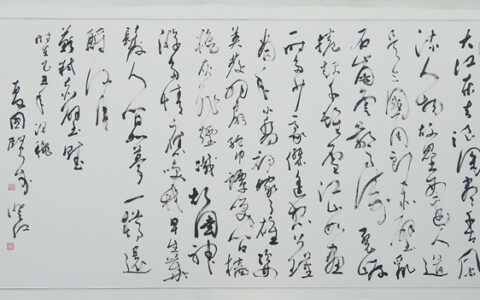 大江东去浪淘尽千古风
流人物故垒西边人道
是三国周郎赤壁乱
石崩云惊涛裂岸
捲起千堆雪江山如画
一时多少豪杰遥想公瑾
当年小乔初嫁了雄姿
英发羽扇纶巾谭笑间樯
橹灰飞烟灭故国神
游多情应笑我早生华
髮人间如梦一樽还
酹江月